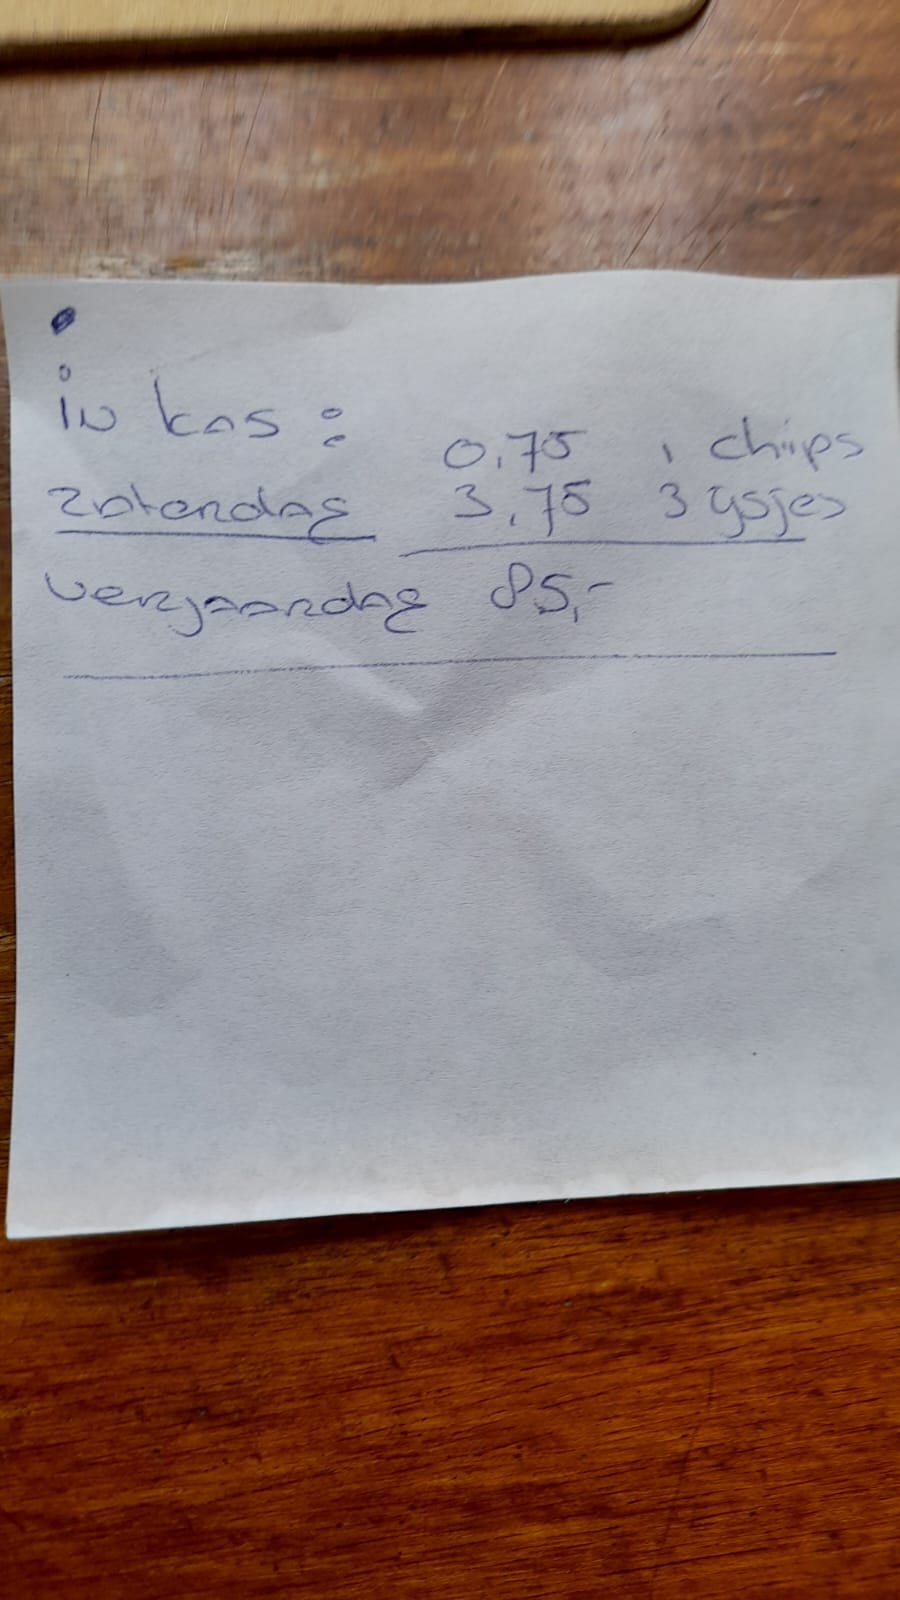 in kas :
0,75 1 chips
zaterdag 3,75 3 ijsjes
verjaardag 85,-